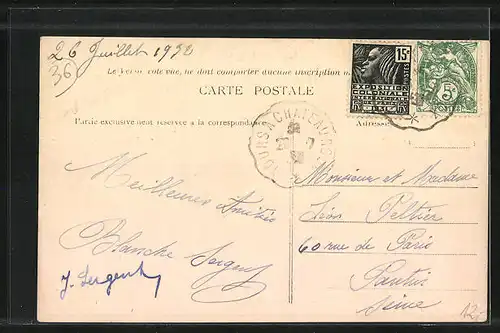 26 Juillet 1932
(36)
Le verso, ne doit comporter aucune inscription
CARTE POSTALE
Partie exclusivement réservée à la correspondance
Adresse
15c
POSTES
EXPOSITION
COLONIALE
INTERNATIONALE
PARIS 1931
5c
POSTES
TOURS A CHATEAUROUX
Meilleures Amitiés
Blanche Sergent
J. Sergent
Monsieur et Madame
Léon Peltier
60 rue de Paris
Pantin
Seine
12.-